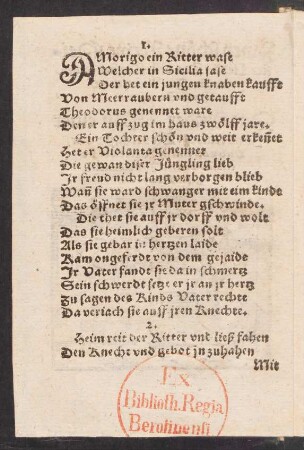 1.
AMorigo ein Ritter wase
Welcher in Sicilia sase
Der het ein jungen knaben kaufft
Von Meerraubern vnd getaufft
Theodorus genennet ware
Den er auff zug im haus zwölff jare.
Ein Tochter schön vnd weit erkeñet
Het er Violanta genennet
Die gewan diser Jüngling lieb
Ir freud nicht lang verborgen blieb
Wañ sie ward schwanger mit eim kinde
Das öffnet sie jr Muter gschwinde.
Die thet sie auff jr dorff vnd wolt
Das sie heimlich geberen solt
Als sie gebar in hertzen laide
Kam ongeferdt von dem gejaide
Ir Vater fandt sie da in schmertz
Sein schwerdt setzt er jr an jr hertz
Zu sagen des Kinds Vater rechte
Da veriach sie auff jren Knechte.
2.
Heim reit der Ritter vnd ließ fahen
Den Knecht vnd gebot jn zuhahen
Mit
Ex
Biblioth. Regia
Berolinensi